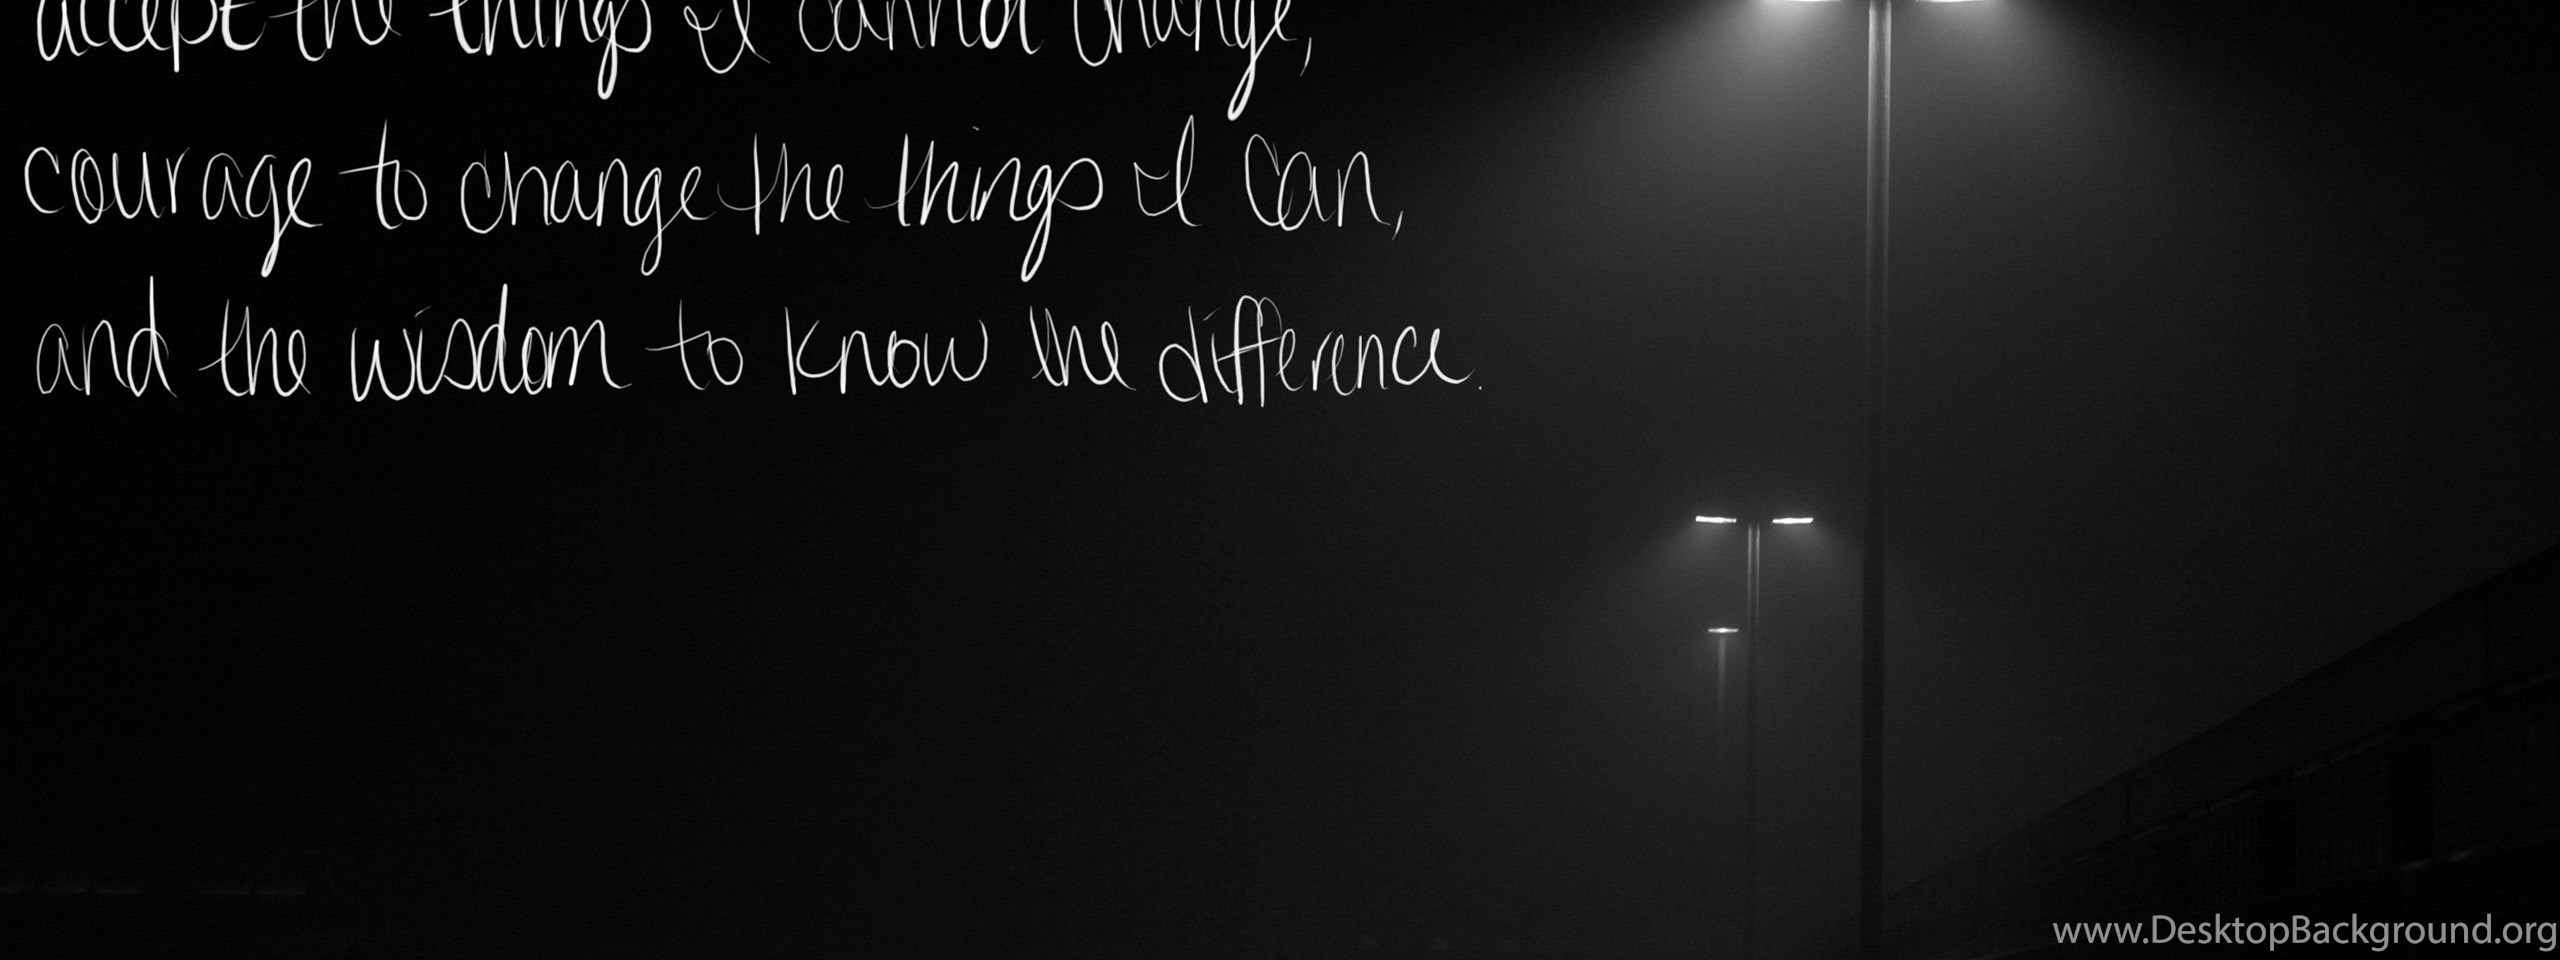 accept the things I cannot change,
courage to change the things I can,
and the wisdom to know the difference.
www.DesktopBackground.org